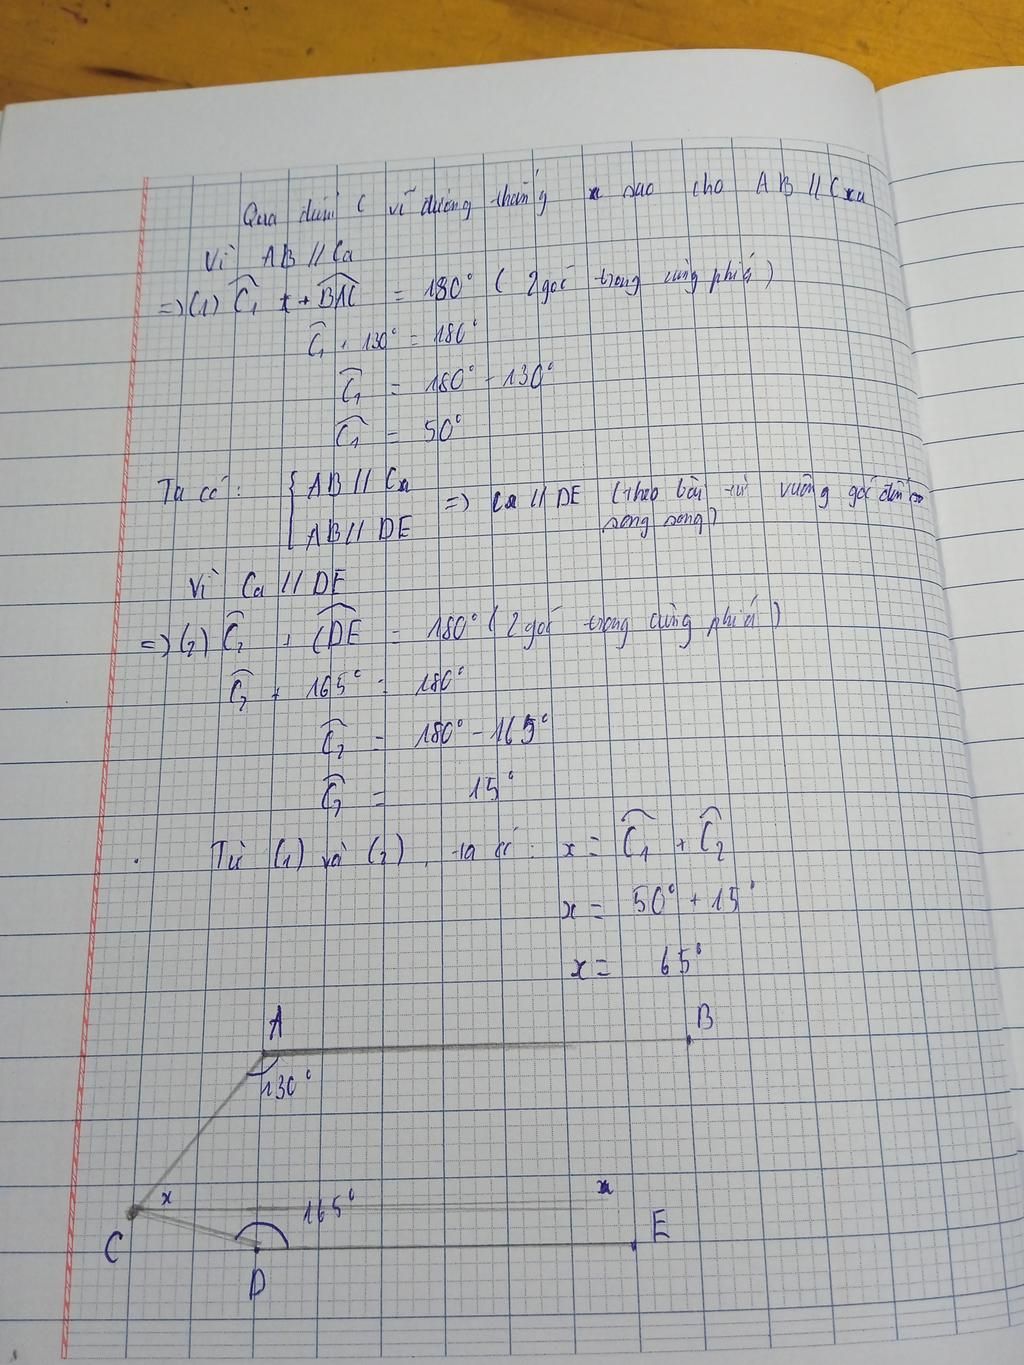 Qua điểm C vẽ đường thẳng sao cho AB // Ca
Vì AB // Ca
=> (1) Ĉ₁ + BAC = 180° ( 2 góc trong cùng phía )
Ĉ₁ + 130° = 180°
Ĉ₁ = 180° - 130°
Ĉ₁ = 50°
Ta có: { AB // Ca
AB // DE => Ca // DE (theo bài từ vuông góc đến
song song)
Vì Ca // DE
=> (2) Ĉ₂ + CDE = 180° ( 2 góc trong cùng phía )
Ĉ₂ + 165° = 180°
Ĉ₂ = 180° - 165°
Ĉ₂ = 15°
Từ (1) và (2), ta có: x = Ĉ₁ + Ĉ₂
x = 50° + 15°
x = 65°
A B
130°
x
165°
C E
D